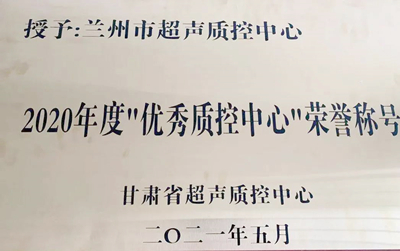 授予:兰州市超声质控中心
2020年度"优秀质控中心"荣誉称号
甘肃省超声质控中心
二〇二一年五月